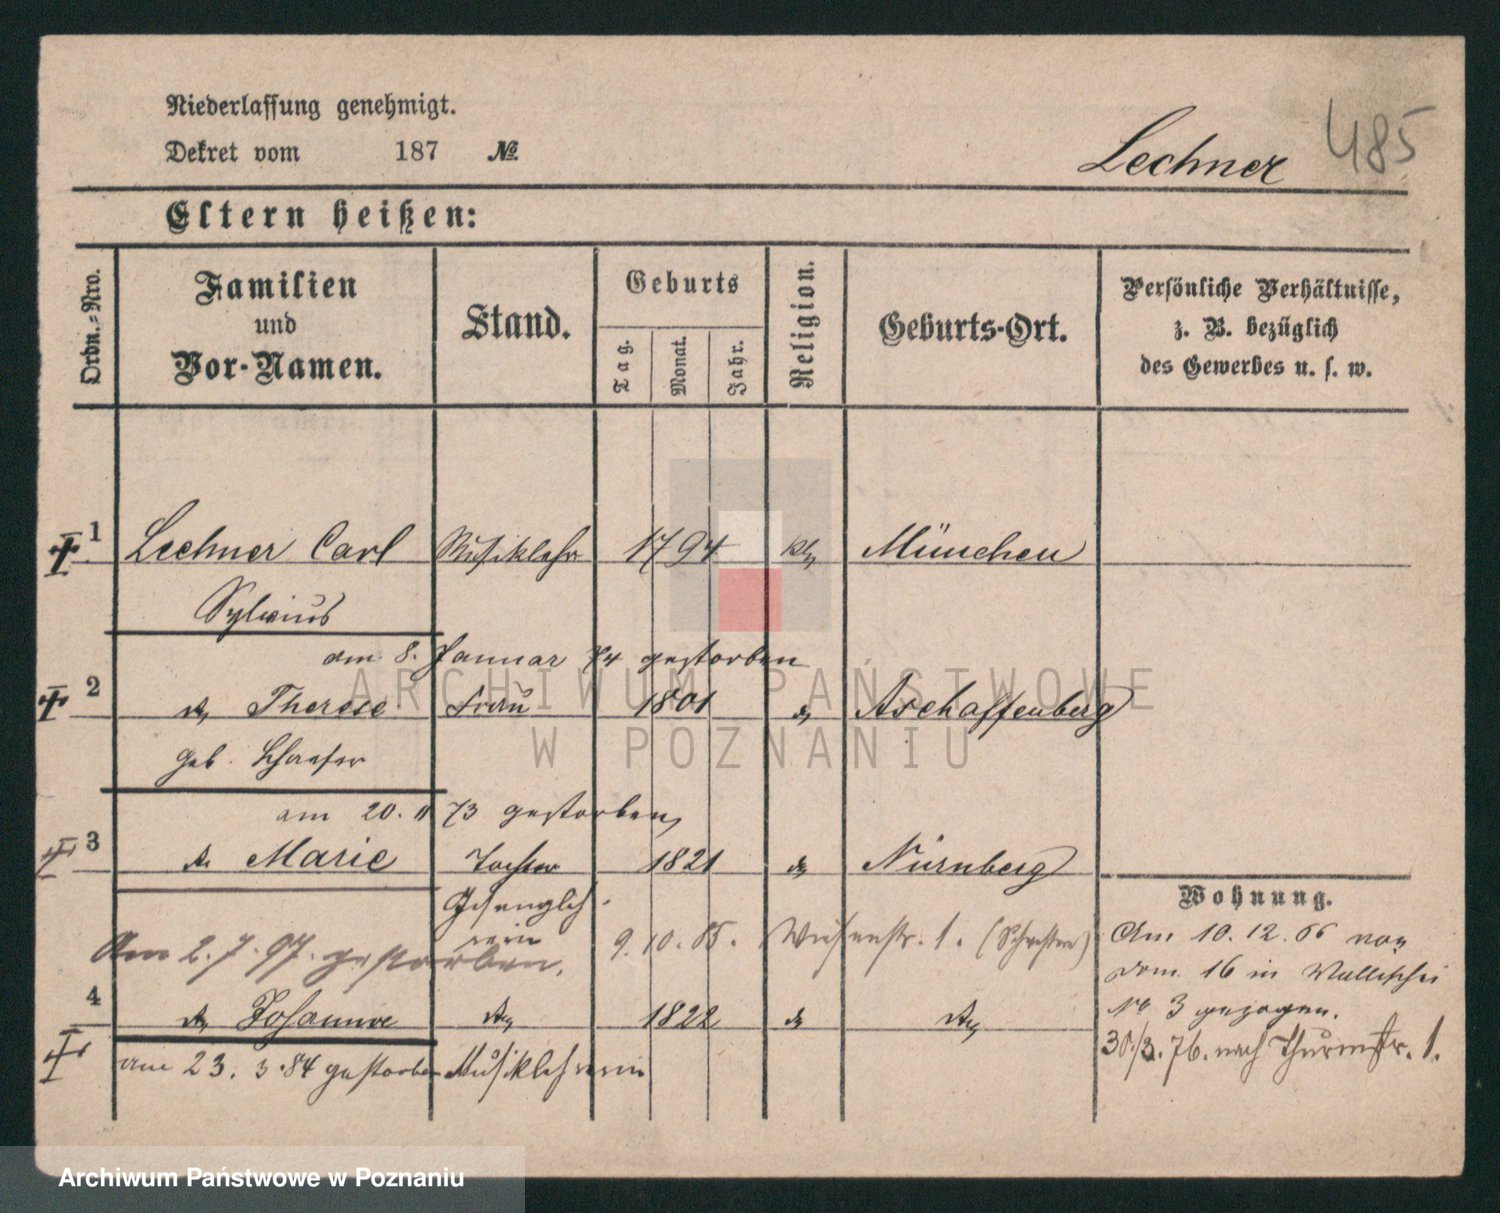 Niederlassung genehmigt.
Dekret vom 187 №
Lechner 485
Eltern heißen:
Ordn.-Nro.
Familien
und
Vor-Namen.
Stand.
Geburts
Tag.
Monat.
Jahr.
Religion.
Geburts-Ort.
Persönliche Verhältnisse,
z. B. bezüglich
des Gewerbes u. s. w.
1 Lechner Carl Musiklehr 1794 kth München
Sylvius
am 8. Januar 74 gestorben
2 Therese Frau 1801 Aschaffenberg
geb. Schaefer
am 20. 11 73 gestorben
3 Marie Tochter 1821 Nürnberg
Wohnung.
Gesanglehrerin
Am 2. 7. 97. gestorben. 9. 10. 85. Wiesenstr. 1. (Schwester)
Am 10. 12. 66 von
vom 16 in Wallischei
No 3 gezogen.
4 Johanne 1822
30./3. 76. nach Thurmstr. 1.
am 23. 3. 84 gestorben Musiklehrerin
ARCHIWUM PAŃSTWOWE
W POZNANIU
Archiwum Państwowe w Poznaniu